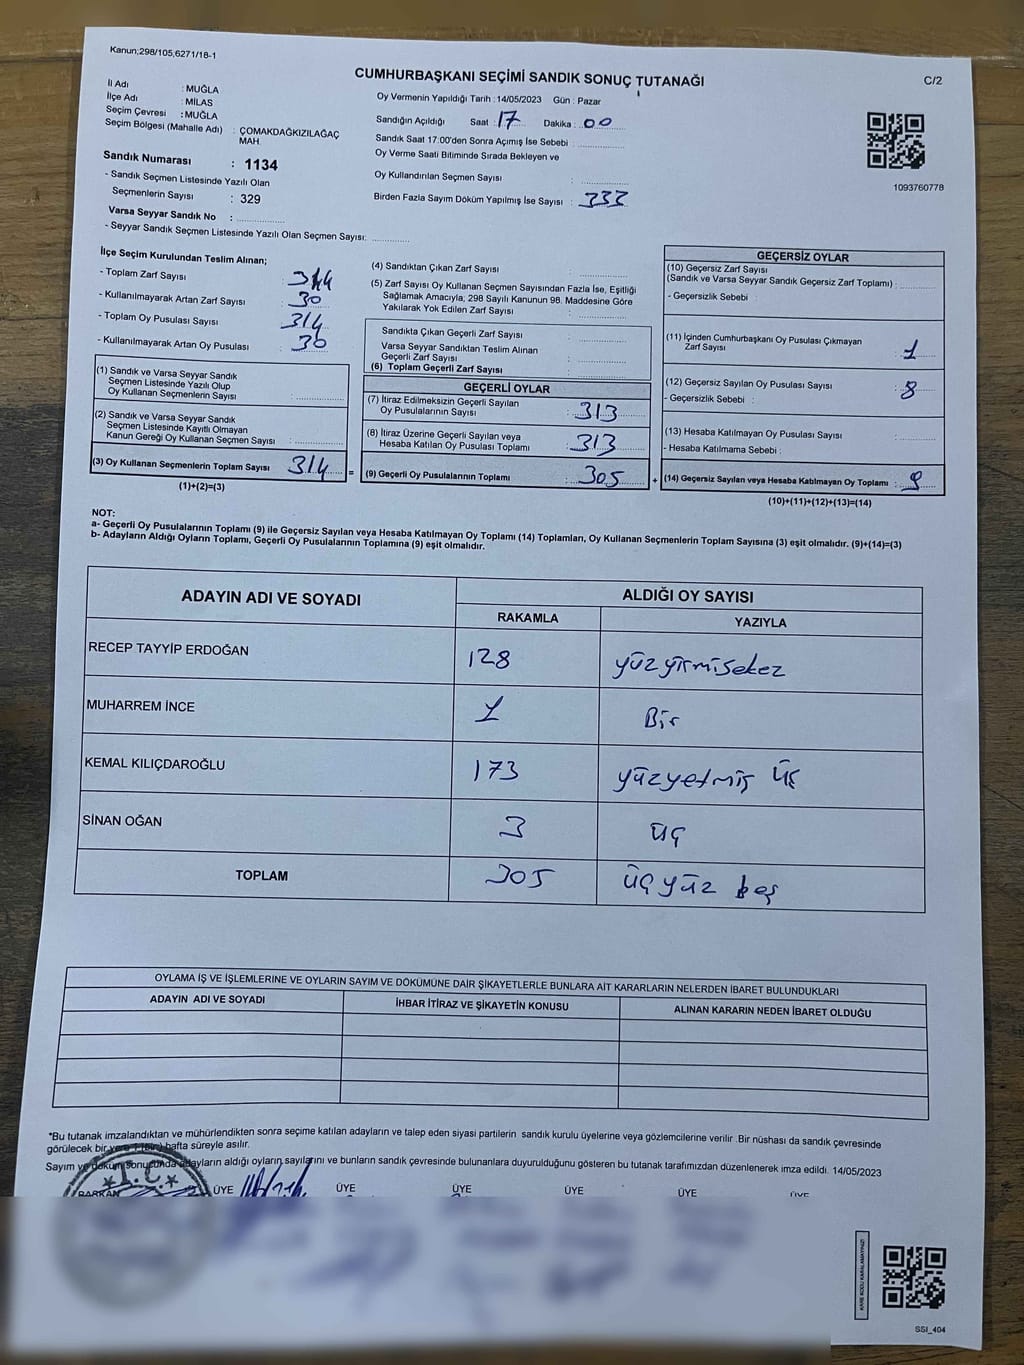 Kanun;298/105,6271/18-1
CUMHURBAŞKANI SEÇİMİ SANDIK SONUÇ TUTANAĞI
C/2
İl Adı : MUĞLA
İlçe Adı : MİLAS
Seçim Çevresi : MUĞLA
Seçim Bölgesi (Mahalle Adı) : ÇOMAKDAĞKIZILAĞAÇ MAH.
Sandık Numarası : 1134
- Sandık Seçmen Listesinde Yazılı Olan
Seçmenlerin Sayısı : 329
Varsa Seyyar Sandık No :
- Seyyar Sandık Seçmen Listesinde Yazılı Olan Seçmen Sayısı:
Oy Vermenin Yapıldığı Tarih : 14/05/2023 Gün : Pazar
Sandığın Açıldığı Saat : 17 Dakika : 00
Sandık Saat 17:00'den Sonra Açımış İse Sebebi :
Oy Verme Saati Bitiminde Sırada Bekleyen ve
Oy Kullandırılan Seçmen Sayısı :
Birden Fazla Sayım Döküm Yapılmış İse Sayısı : 333
1093760778
İlçe Seçim Kurulundan Teslim Alınan;
- Toplam Zarf Sayısı : 344
- Kullanılmayarak Artan Zarf Sayısı : 30
- Toplam Oy Pusulası Sayısı : 314
- Kullanılmayarak Artan Oy Pusulası : 30
(1) Sandık ve Varsa Seyyar Sandık
Seçmen Listesinde Yazılı Olup
Oy Kullanan Seçmenlerin Sayısı :
(2) Sandık ve Varsa Seyyar Sandık
Seçmen Listesinde Kayıtlı Olmayan
Kanun Gereği Oy Kullanan Seçmen Sayısı :
(3) Oy Kullanan Seçmenlerin Toplam Sayısı : 314 =
(1)+(2)=(3)
(4) Sandıktan Çıkan Zarf Sayısı :
(5) Zarf Sayısı Oy Kullanan Seçmen Sayısından Fazla İse, Eşitliği
Sağlamak Amacıyla; 298 Sayılı Kanunun 98. Maddesine Göre
Yakılarak Yok Edilen Zarf Sayısı :
Sandıkta Çıkan Geçerli Zarf Sayısı :
Varsa Seyyar Sandıktan Teslim Alınan
Geçerli Zarf Sayısı :
(6) Toplam Geçerli Zarf Sayısı :
GEÇERLİ OYLAR
(7) İtiraz Edilmeksizin Geçerli Sayılan
Oy Pusulalarının Sayısı : 313
(8) İtiraz Üzerine Geçerli Sayılan veya
Hesaba Katılan Oy Pusulası Toplamı : 313
(9) Geçerli Oy Pusulalarının Toplamı : 305 +
GEÇERSİZ OYLAR
(10) Geçersiz Zarf Sayısı
(Sandık ve Varsa Seyyar Sandık Geçersiz Zarf Toplamı) :
- Geçersizlik Sebebi :
(11) İçinden Cumhurbaşkanı Oy Pusulası Çıkmayan
Zarf Sayısı : 1
(12) Geçersiz Sayılan Oy Pusulası Sayısı : 8
- Geçersizlik Sebebi :
(13) Hesaba Katılmayan Oy Pusulası Sayısı :
- Hesaba Katılmama Sebebi :
(14) Geçersiz Sayılan veya Hesaba Katılmayan Oy Toplamı : 9
(10)+(11)+(12)+(13)=(14)
NOT:
a- Geçerli Oy Pusulalarının Toplamı (9) ile Geçersiz Sayılan veya Hesaba Katılmayan Oy Toplamı (14) Toplamları, Oy Kullanan Seçmenlerin Toplam Sayısına (3) eşit olmalıdır. (9)+(14)=(3)
b- Adayların Aldığı Oyların Toplamı, Geçerli Oy Pusulalarının Toplamına (9) eşit olmalıdır.
ADAYIN ADI VE SOYADI
ALDIĞI OY SAYISI
RAKAMLA YAZIYLA
RECEP TAYYİP ERDOĞAN 128 yüzyirmisekez
MUHARREM İNCE 1 Bir
KEMAL KILIÇDAROĞLU 173 yüzyetmiş üç
SİNAN OĞAN 3 üç
TOPLAM 305 üçyüz beş
OYLAMA İŞ VE İŞLEMLERİNE VE OYLARIN SAYIM VE DÖKÜMÜNE DAİR ŞİKAYETLERLE BUNLARA AİT KARARLARIN NELERDEN İBARET BULUNDUKLARI
ADAYIN ADI VE SOYADI İHBAR İTİRAZ VE ŞİKAYETİN KONUSU ALINAN KARARIN NEDEN İBARET OLDUĞU
*Bu tutanak imzalandıktan ve mühürlendikten sonra seçime katılan adayların ve talep eden siyasi partilerin sandık kurulu üyelerine veya gözlemcilerine verilir .Bir nüshası da sandık çevresinde
görülecek bir yere 1 (bir) hafta süreyle asılır.
Sayım ve döküm sonucunda adayların aldığı oyların sayılarını ve bunların sandık çevresinde bulunanlara duyurulduğunu gösteren bu tutanak tarafımızdan düzenlenerek imza edildi. 14/05/2023
T.C.
BAŞKAN ÜYE ÜYE ÜYE ÜYE ÜYE ÜYE
KARE KODU KARALAMAYINIZ!
SSI_404